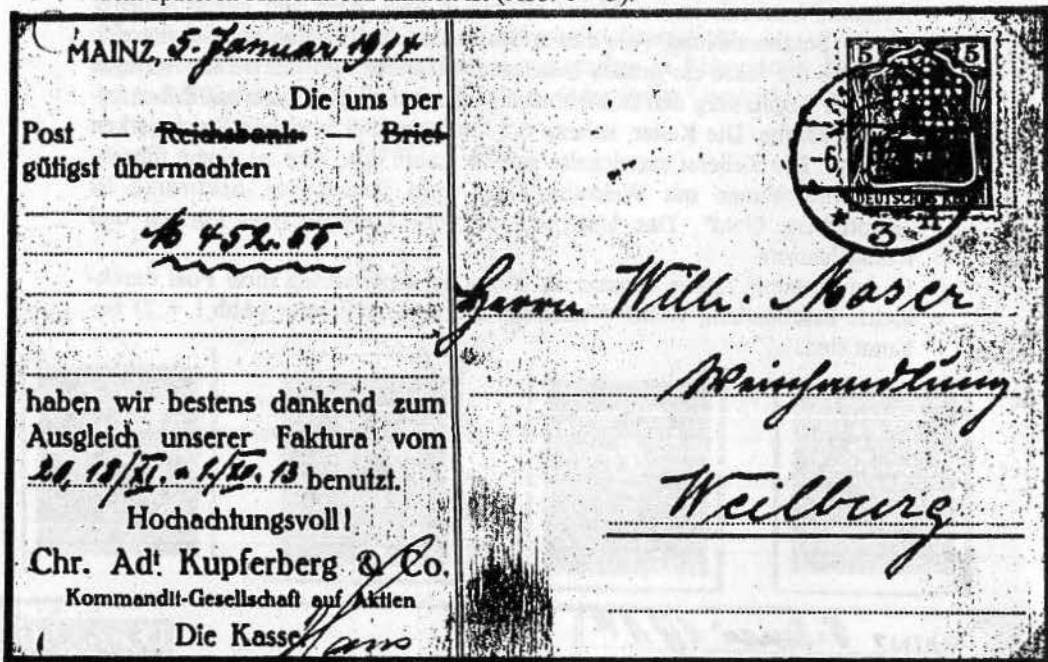 MAINZ, 5. Januar 1914
Die uns per
Post Reichsbank- — Brief
gütigst übermachten
M 452.55
haben wir bestens dankend zum
Ausgleich unserer Faktura vom
20, 18/XI. 13 benutzt.
Hochachtungsvoll!
Chr. Adt. Kupferberg & Co.
Kommandit-Gesellschaft auf Aktien
Die Kasse
5 5
DEUTSCHES REICH
3
Herrn Wilh. Moser
Weinhandlung
Weilburg